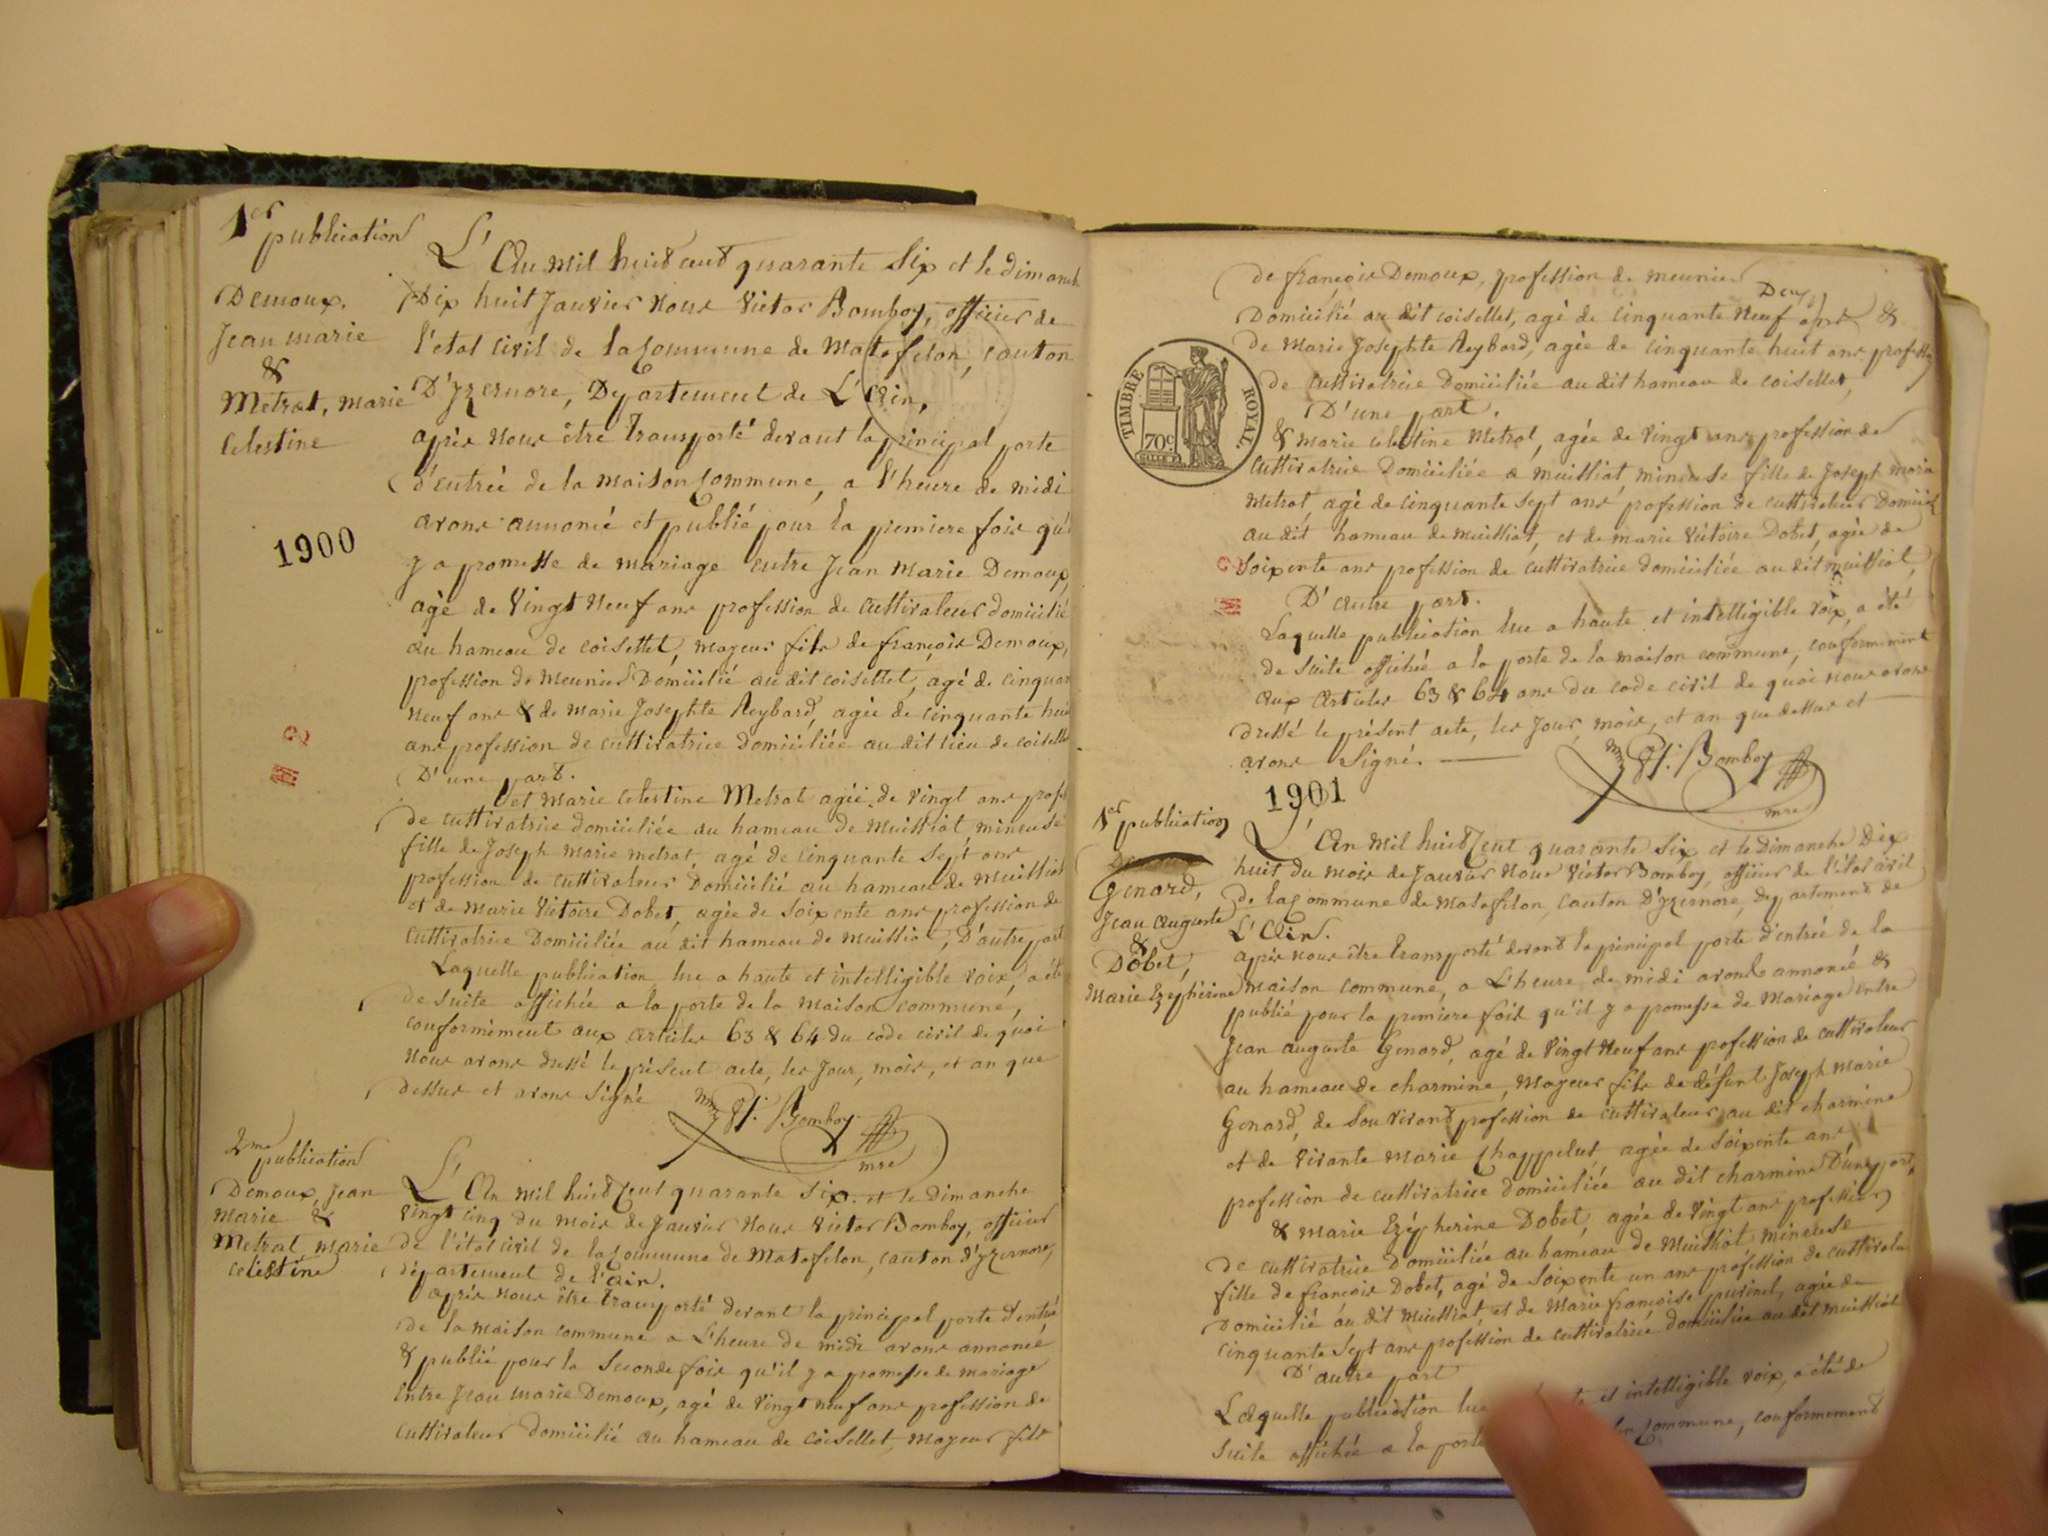 1er publication
Demoux,
Jean marie
&
Metrat, marie
Celestine
1900
L'An mil huit cent quarante Six et le dimanch
Dix huit Janvier Nous Victor Bomboy, officier de
l'etat civil de la Commune de Matafelon, canton
D'yzernore, Departement de L'Ain,
après nous être transporté devant la principal porte
d'entrée de la maison Commune, a l'heure de midi
avons annoncé et publié pour la premiere fois qu'i
y a promesse de mariage entre Jean Marie Demoux,
agé de vingt Neuf ans profession de cultivateur domicilié
au hameau de coisellet, mayeur fils de françois Demoux,
profession de meunier Domicilié au dit coisellet, agé de cinquan
Neuf ans & de marie Josephte Reybard, agée de cinquante hui
ans profession de cultivatrice domiciliée au dit lieu de coiselle
D'une part.
et marie celestine Metrat agée de vingt ans profes
de cultivatrice domiciliée au hameau de Muissiat, mineuse
fille de Joseph marie metrat, agé de cinquante sept ans
profession de cultivateur Domicilié au hameau de Muissiat
et de marie Victoire Dobet, agée de soixente ans profession de
cultivatrice Domiciliée au dit hameau de muissiat, D'autre part
Laquelle publication lue a haute et intelligible voix, a été
de suite affichée a la porte de la maison commune,
conformement aux articles 63 & 64 du code civil de quoi
nous avons dressé le présent acte, les Jour, mois, et an que
dessus et avons signé
Bomboy
mre
2me publication
Demoux, Jean
marie &
Metrat, marie
celestine
L'An mil huit Cent quarante six. et le dimanche
vingt cinq du mois de Janvier Nous Victor Bomboy, officier
de l'état civil de la Commune de Matafelon, canton d'yzernore,
département de l'ain.
après nous être transporté devant la principal porte d'entré
de la maison commune a L'heure de midi avons annoncé
& publié pour la Seconde fois qu'il y a promesse de mariage
Entre Jean marie Demoux, agé de vingt neuf ans profession de
cultivateur domicilié au hameau de coisellet, mayeur fils
de françois Demoux, profession de meunier
Domicilié au dit coisellet, agé de cinquante Neuf ans &
de Marie Josephte Reybard, agée de cinquante huit ans professi
de cultivatrice Domiciliée au dit hameau de coisellet,
D'une part.
TIMBRE ROYAL
70c
& marie celestine Metrat, agée de vingt ans profession de
cultivatrice Domiciliée a muissiat mineuse fille de Joseph marie
metrat, agé de cinquante sept ans profession de cultivateur Domicil
au dit hameau de muissiat, et de marie Victoire Dobet, agée de
soixente ans profession de cultivatrice domiciliée au dit muissiat,
D'autre part.
Laquelle publication lue a haute et intelligible voix, a été
de suite affichée a la porte de la maison commune, conformement
aux articles 63 & 64 ans du code civil de quoi nous avons
dressé le présent acte, les Jour, mois, et an que dessus et
avons signé.
Bomboy
mre
1901
1er publication
Genard,
Jean Auguste
&
Dobet,
Marie Ezépherine
L'An mil huit Cent quarante Six et le dimanche Dix
huit du mois de Janvier Nous Victor Bomboy, officier de l'état civil
de la Commune de Matafelon, canton D'yzernore, departement de
L'Ain.
après nous être transporté devant la principal porte d'entrée de la
maison commune, a L'heure de midi avons annoncé &
publié pour la premiere fois qu'il y a promesse de Mariage entre
Jean auguste Genard, agé de vingt Neuf ans profession de cultivateur
au hameau de charmine, Mayeur fils de défunt Joseph Marie
Genard, de son vivant profession de cultivateur, au dit charmine
et de vivante marie Chappelut agée de soixente ans,
profession de cultivatrice domiciliée au dit charmine D'une part,
& marie Ezépherine Dobet, agée de vingt ans profession
de cultivatrice Domiciliée au hameau de Muissiat mineuse
fille de françois Dobet, agé de soixente un ans profession de cultivateu
Domicilié au dit muissiat et de Marie françoise purinet, agée de
cinquante sept ans profession de cultivatrice domiciliée au dit muissiat
D'autre part
Laquelle publication lue et intelligible voix, a été de
suite affichée a la porte commune, conformement